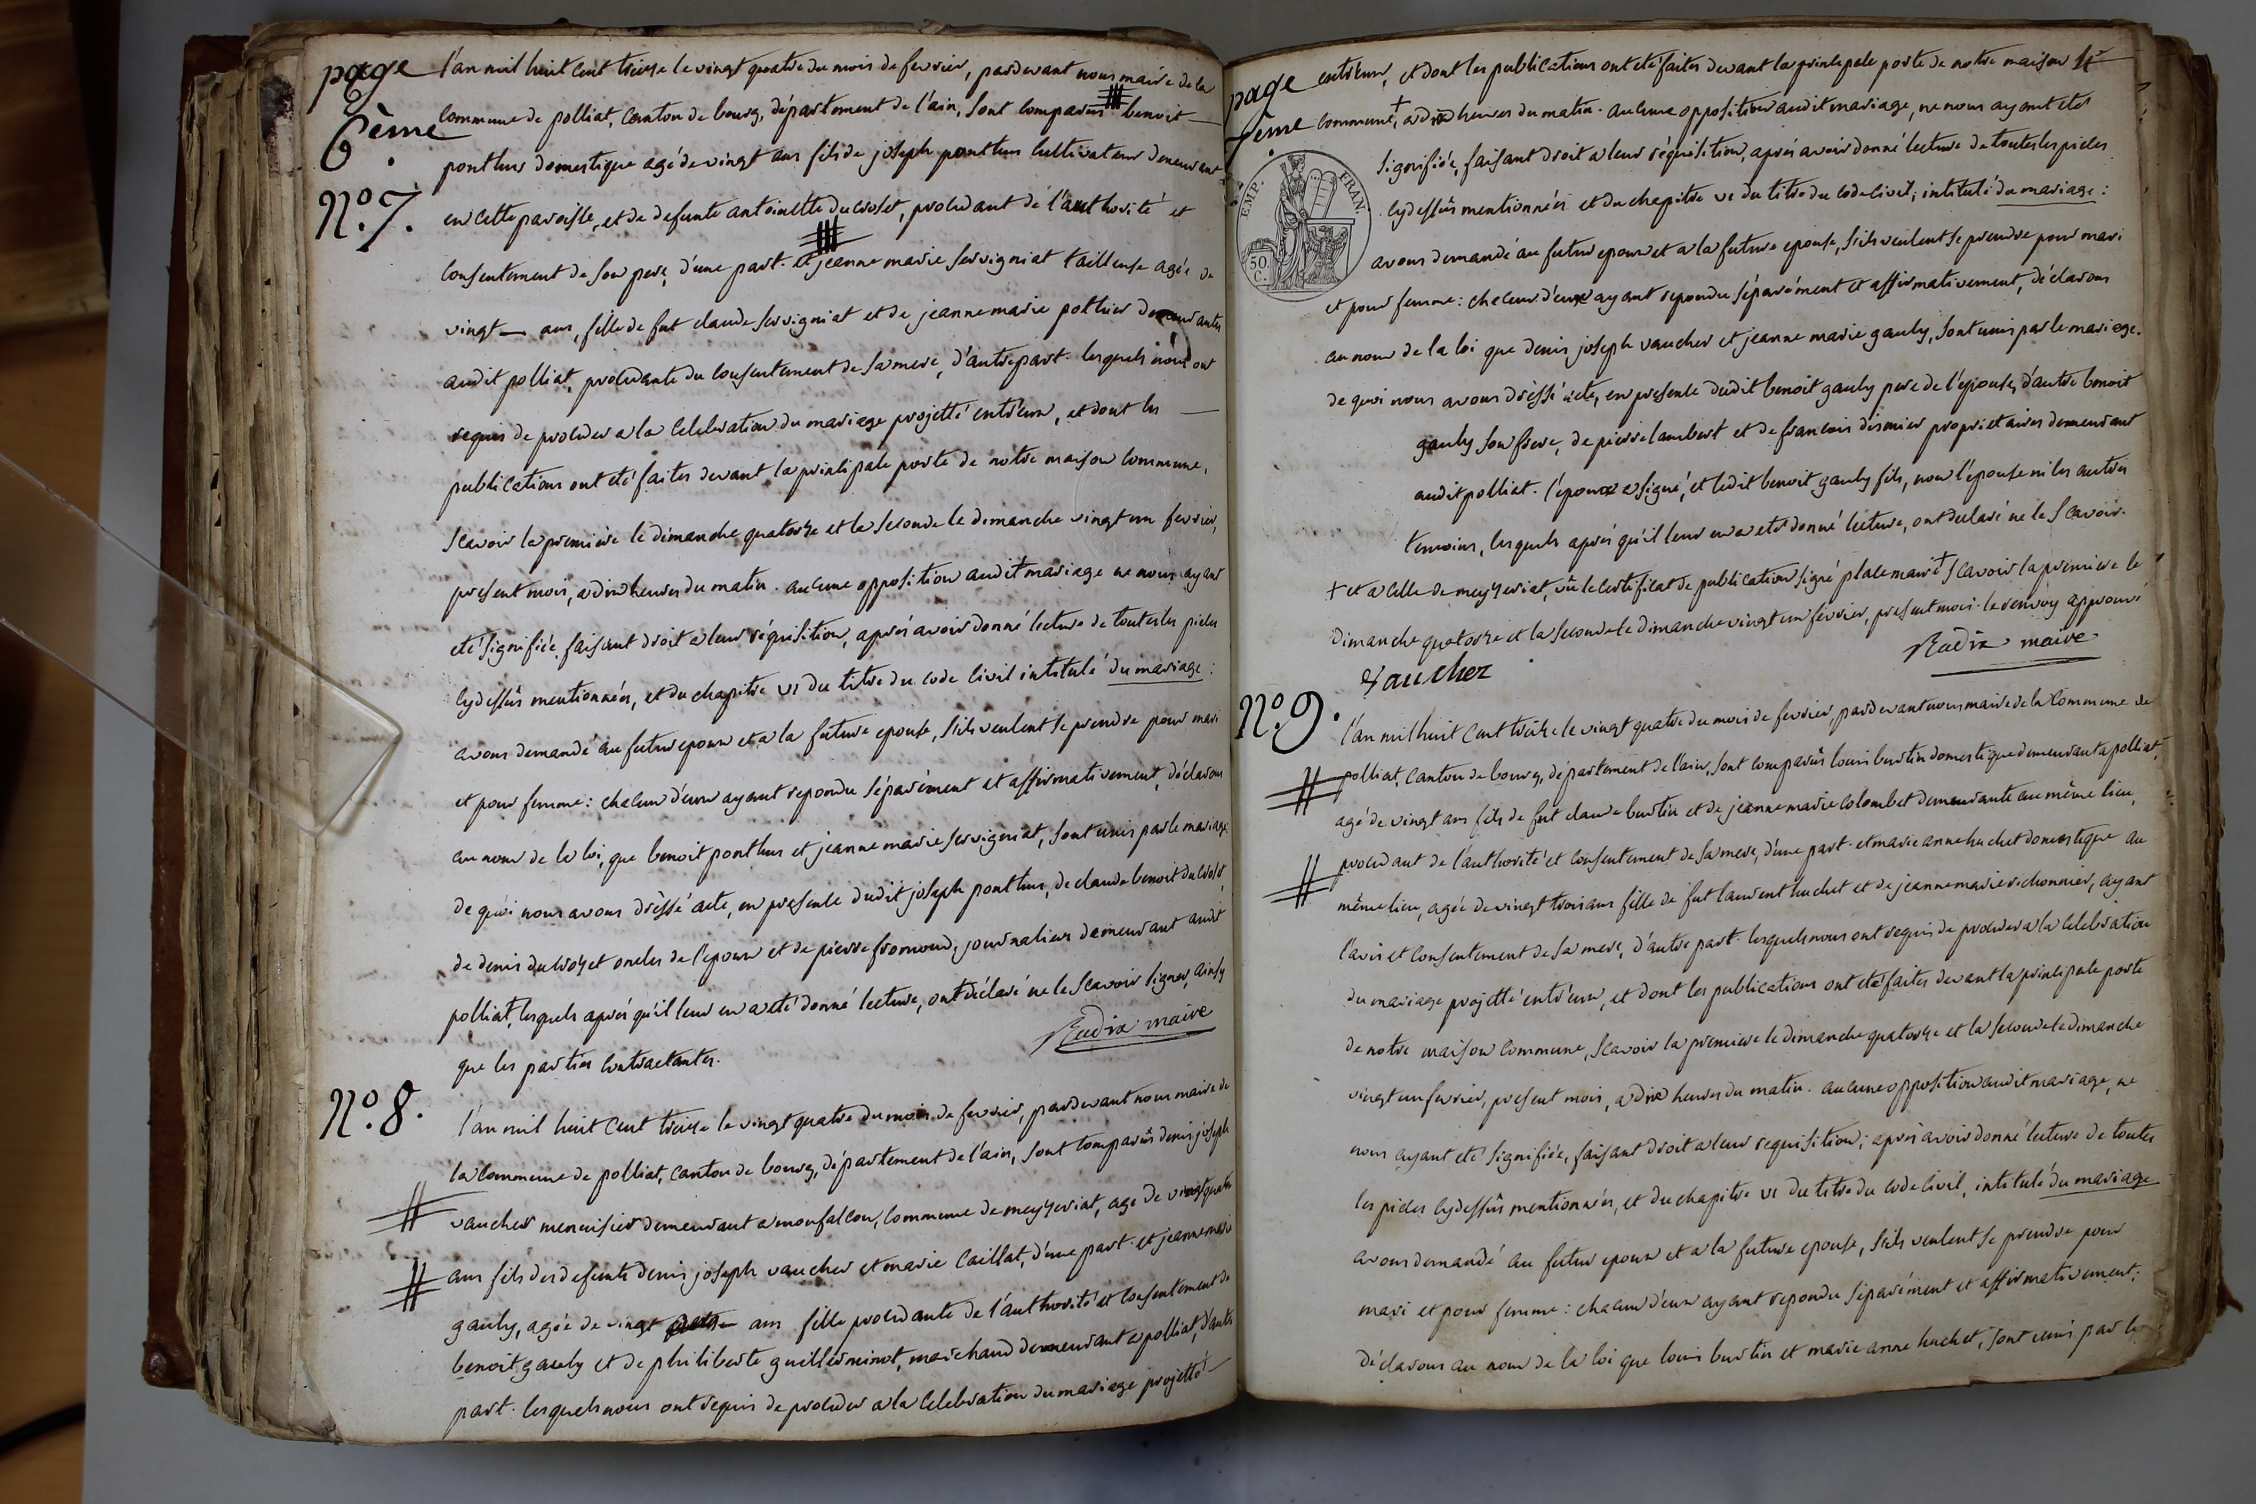 page
6ème
l'an mil huit cent treize le vingt quatre du mois de fevrier, pardevant nous maire de la
commune de polliat, canton de bourg, département de l'ain, sont comparus benoit
N.º 7.
ponthus domestique agé de vingt ans fils de joseph ponthus cultivateur demeurant
en cette paroisse, et de defunte antoinette ducroset, procedant de l'authorité et
consentement de son pere, d'une part. et jeanne marie servigniat tailleuse agée de
vingt ans, fille de fut claude servigniat et de jeanne marie pothier demeurantes
audit polliat, procedante du consentement de sa mere, d'autre part. lesquels nous ont
requis de proceder a la celebration du mariage projetté entr'eux, et dont les
publications ont eté faites devant la principale porte de notre maison commune,
scavoir la premiere le dimanche quatorze et la seconde le dimanche vingt un fevrier,
present mois, a dix heures du matin. aucune opposition audit mariage ne nous ayant
eté signifiée, faisant droit a leur réquisition, aprés avoir donné lecture de toutes les pieces
cydessûs mentionnées, et du chapitre VI du titre du code civil intitulé du mariage :
avons demandé au futur epoux et a la future epouse, s'ils veulent se prendre pour mari
et pour femme : chacun d'eux ayant repondu séparément et affirmativement, déclarons
au nom de la loi, que benoit ponthus et jeanne marie servigniat, sont unis par le mariage
de quoi nous avons dréssé acte, en presence dudit joseph ponthus, de claude benoit ducroset,
de denis ducrozet oncles de l'epoux et de pierre fromond, journaliers demeurant audit
polliat, lesquels aprés qu'il leur en a eté donné lecture, ont déclaré ne le scavoir signer, ainsy
que les parties contractantes.
Nadix maire
N.º 8.
l'an mil huit cent treize le vingt quatre du mois de fevrier, pardevant nous maire de
la commune de polliat, canton de bourg, département de l'ain, sont comparûs denis joseph
vaucher menuisier demeurant a monfalcon, commune de meyzeriat, agé de vingt quatre
ans fils des defunts denis joseph vaucher et marie caillat, d'une part. et jeanne marie
gauly, agée de vingt ans fille procedante de l'authorité et consentement de
benoit gauly et de philiberte guillerminot, marchand demeurant a polliat, d'autre
part. lesquels nous ont requis de proceder a la celebration du mariage projetté
page
7ème
EMP. FRAN.
50 C.
entr'eux, et dont les publications ont eté faites devant la principale porte de notre maison
commune, + a dix heures du matin. aucune opposition audit mariage, ne nous ayant eté
signifiée, faisant droit a leur réquisition, aprés avoir donné lecture de toutes les pieces
cydessûs mentionnées et du chapitre VI du titre du code civil, intitulé du mariage :
avons demandé au futur epoux et a la future epouse, s'ils veulent se prendre pour mari
et pour femme : chacun d'eux ayant repondu séparément et affirmativement, déclarons
au nom de la loi que denis joseph vaucher et jeanne marie gauly, sont unis par le mariage.
de quoi nous avons dréssé acte, en presence dudit benoit gauly pere de l'epouse, d'autre benoit
gauly son frere, de pierre lambert et de francois dismier proprietaires demeurant
audit polliat. l'epoux a signé, et ledit benoit gauly fils, non l'epouse ni les autres
temoins, lesquels aprés qu'il leur en a eté donné lecture, ont declaré ne le scavoir.
+ et a celle de meyzeriat, vû le certificat de publication signé place maire + scavoir la premiere le
dimanche quatorze et la seconde le dimanche vingt un février, present mois. le renvoy approuvé
Vaucher
Nadix maire
N.º 9.
l'an mil huit cent treize le vingt quatre du mois de fevrier, pardevant nous maire de la commune de
polliat, canton de bourg, département de l'ain, sont comparûs louis burtin domestique demeurant a polliat,
agé de vingt ans fils de fut claude burtin et de jeanne marie colombet demeurante au même lieu,
procedant de l'authorité et consentement de sa mere, d'une part. et marie anne huchet domestique au
même lieu, agée de vingt trois ans fille de fut laurent huchet et de jeanne marie richonnier, ayant
l'avis et consentement de sa mere, d'autre part. lesquels nous ont requis de proceder a la celebration
du mariage projetté entr'eux, et dont les publications ont eté faites devant la principale porte
de notre maison commune, scavoir la premiere le dimanche quatorze et la seconde le dimanche
vingt un fevrier, present mois, a dix heures du matin. aucune opposition audit mariage, ne
nous ayant eté signifiée, faisant droit a leur requisition ; aprés avoir donné lecture de toutes
les pieces cydessûs mentionnées, et du chapitre VI du titre du code civil, intitulé du mariage
avons demandé au futur epoux et a la future epouse, s'ils veulent se prendre pour
mari et pour femme : chacun d'eux ayant repondu séparément et affirmativement ;
déclarons au nom de la loi que louis burtin et marie anne huchet, sont unis par le